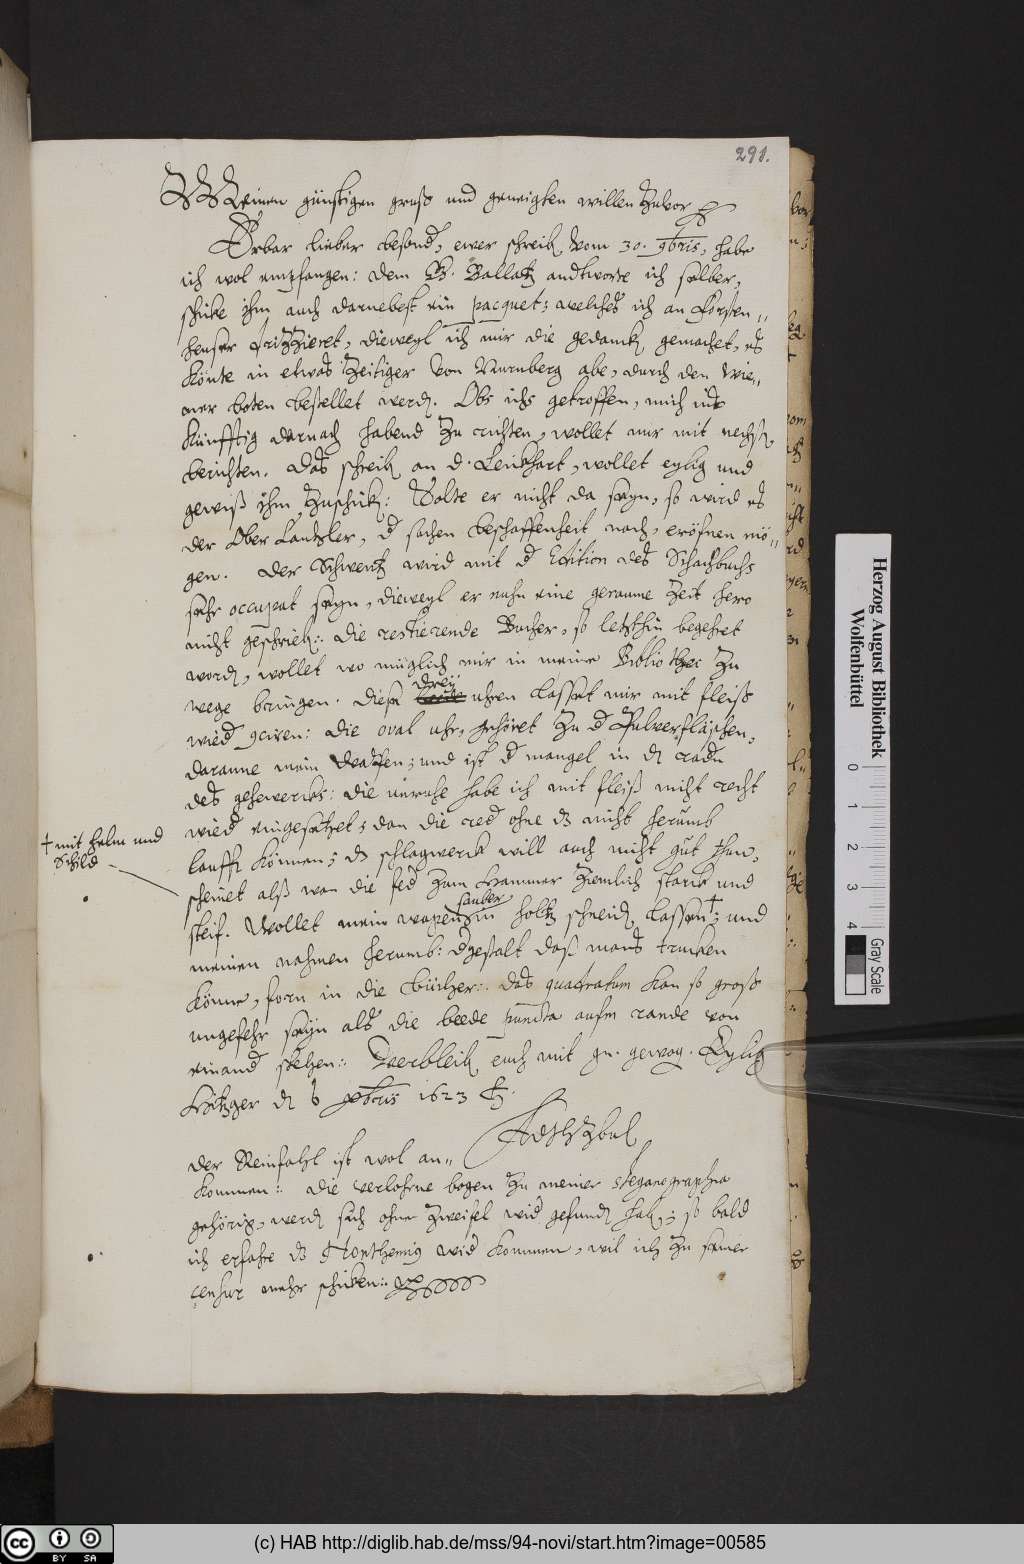 291.
Meinen günstigen gruß und geneigten willen zuvor
Erbar lieber besond., ewer schreib. vom 30. 9bris, habe
ich wol empfangen: dem H. Ballatz andtworte ich selber,
schike ihm auch darnebest ein pacquet; welches ich an Forsten„
heuser, dieweyl ich mir die gedanck gemachet, es
könte in etwas zeitiger von Nurnberg abe, durch den Wie„
ner boten bestellet werd. Obs ichs getroffen, mich ins
künfftig darnach habend zu richten, wollet mir mit nechst.
berichten. Das schreib. an d. Leickhart, wollet eylig und
gewiß ihm zuschick: Solte er nicht da seyn, so wird es
der Ober Cantzler, d sachen beschaffenheit nach, eröfnen mö„
gen. Der Schwertz wird mit d Edition des Schachbuchs
sehr occupat seyn, dieweyl er nuhn eine geraume zeit hero
nicht geschrieb:. Die restierende Bucher, so letzthin begehret
word, wollet wo müglich mir in meine Bibliothec zu
drey
wege bringen. Diese uhren lasset mir mit fleiß
wied: die oval uhr, gehöret zu d Pulverfläschen,
daranne mein Wapfen; und ist d mangel in d rad
des geheweriks: die unruhe habe ich mit fleiß nicht recht
wied eingesetzet; dan die red ohne ds nicht herumb
† mit helm und
Schild
lauff können; ds schlagwerck will auch nicht gut thun,
scheinet alß wan die fed zum Hammer ziemlich starck und
sauber
steif. Wollet mein wapen in holtz schneid. lassen†; und
meinen nahmen herumb: dgestalt daß mans trucken
könne, forn in die bücher:. das quadratum kan so groß
ungefehr seyn als die beede puncta aufm rande von
einand stehen:. Verbleib. euch mit gn. gewog. Eylig
Hitzger d 6 Xbris 1623
AdHzbuL
Der Reinfahl ist wol an„
kommen:. Die verlohrne bogen zu meiner steganographia
gehörig, werd sich ohne zweifel wid gefund hab.; so bald
ich erfahre ds wid kommen, wil ich zu seiner
censur mehr schicken:.
Herzog August Bibliothek
Wolfenbüttel
0 1 2 3 4
Gray Scale
cc BY SA
(c) HAB http://diglib.hab.de/mss/94-novi/start.htm?image=00585